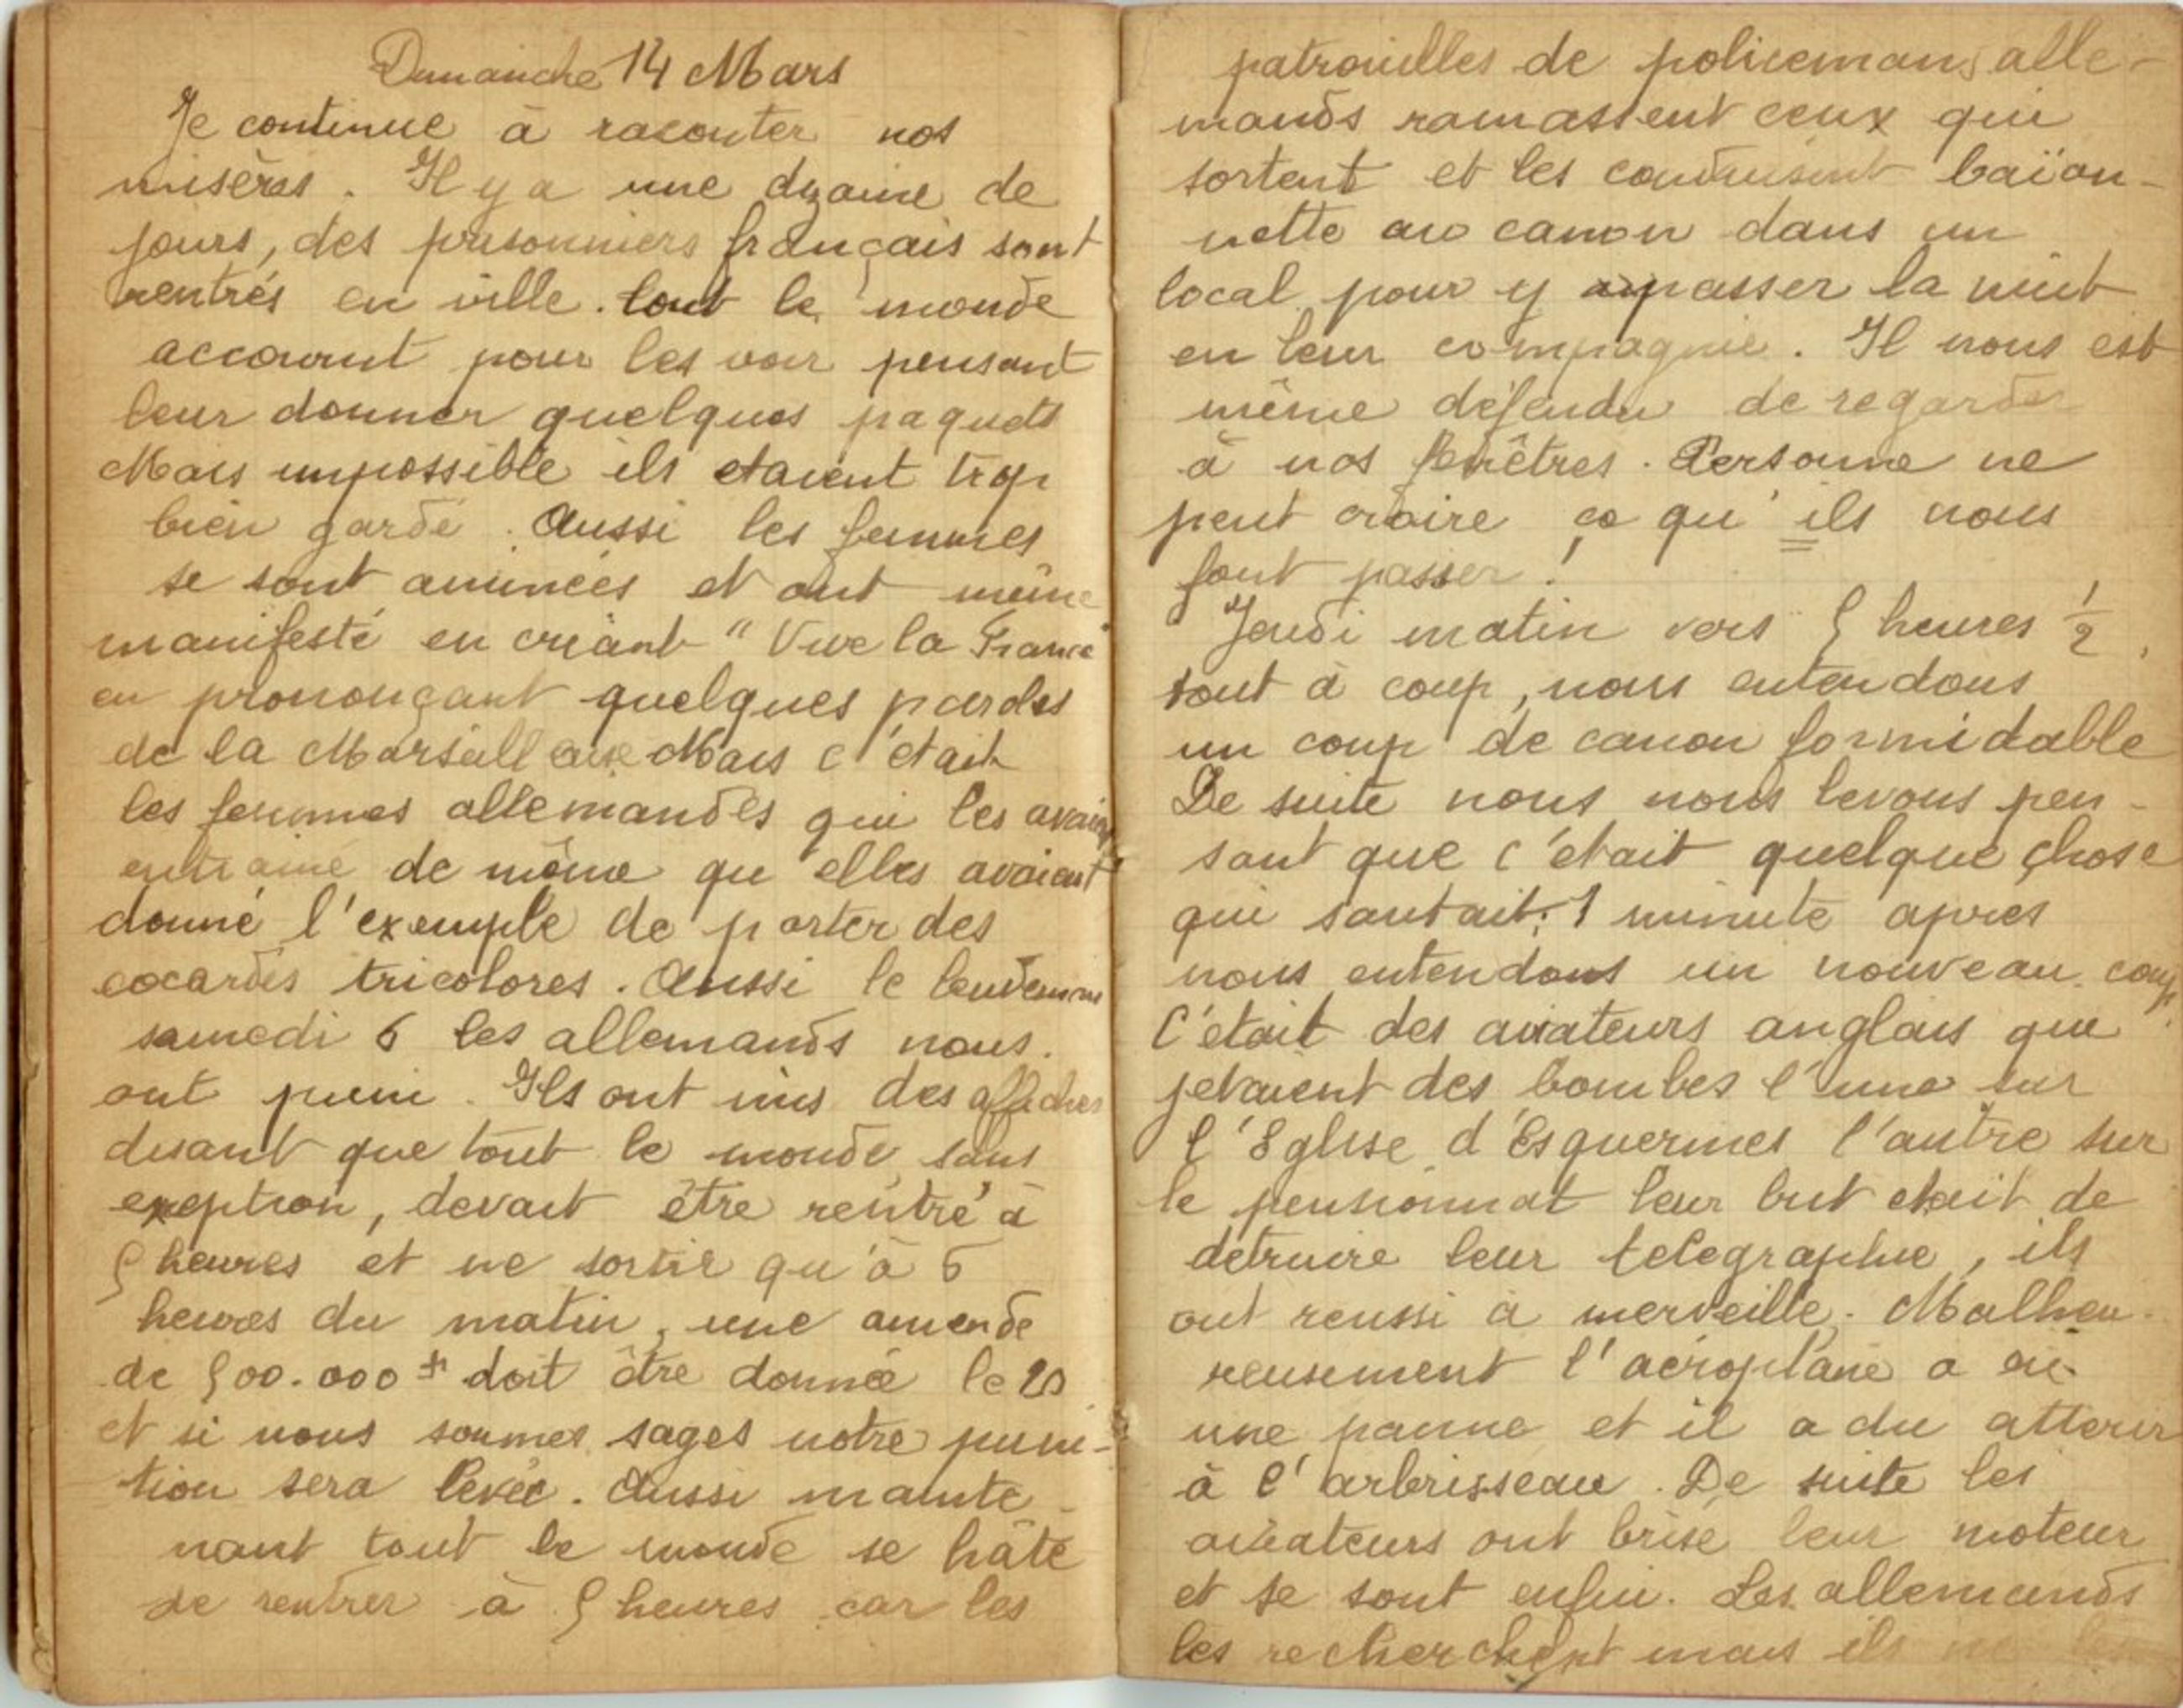 Dimanche 14 Mars
Je continue à raconter nos
misères. Il y a une dizaine de
jours, des prisonniers français sont
rentrés en ville. tout le monde
accourut pour les voir pensant
leur donner quelques paquets
Mais impossible ils etaient trop
bien gardé. Aussi les femmes
se sont animées et ont même
manifesté en criant "Vive la France"
en prononçant quelques paroles
de la Marseillaise Mais c'était
les femmes allemandes qui les avaient
entrainé de même qu'elles avaient
donné l'exemple de porter des
cocardes tricolores. Aussi le lendemain
samedi 6 les allemands nous
ont puni. Ils ont mis des affiches
disant que tout le monde sans
exeption, devait être rentré à
5 heures et ne sortir qu'à 6
heures du matin, une amende
de 500.000 f doit être donnée le 20
et si nous sommes sages notre puni-
tion sera levée. Aussi mainte-
nant tout le monde se hâte
de rentrer à 5 heures car les
patrouilles de policemans alle-
mands ramassent ceux qui
sortent et les conduisent baïon-
nette au canon dans un
local pour y passer la nuit
en leur compagnie. Il nous est
même défendu de regarder
à nos fenêtres. Personne ne
peut croire ce qu'ils nous
font passer!
Jeudi matin vers 5 heures ½,
tout à coup, nous entendons
un coup de canon formidable
De suite nous nous levons pen-
sant que c'était quelque chose
qui sautait; 1 minute apres
nous entendons un nouveau coup
C'était des aviateurs anglais que
jetaient des bombes l'une sur
l'Eglise d'Esquermes l'autre sur
le pensionnat leur but était de
détruire leur telegraphie, ils
ont reussi à merveille. Malheu-
reusement l'aéroplane a eu
une panne et il a du atterir
à l'arbrisseau. De suite les
aviateurs ont brisé leur moteur
et se sont enfui. Les allemands
les recherchent mais ils